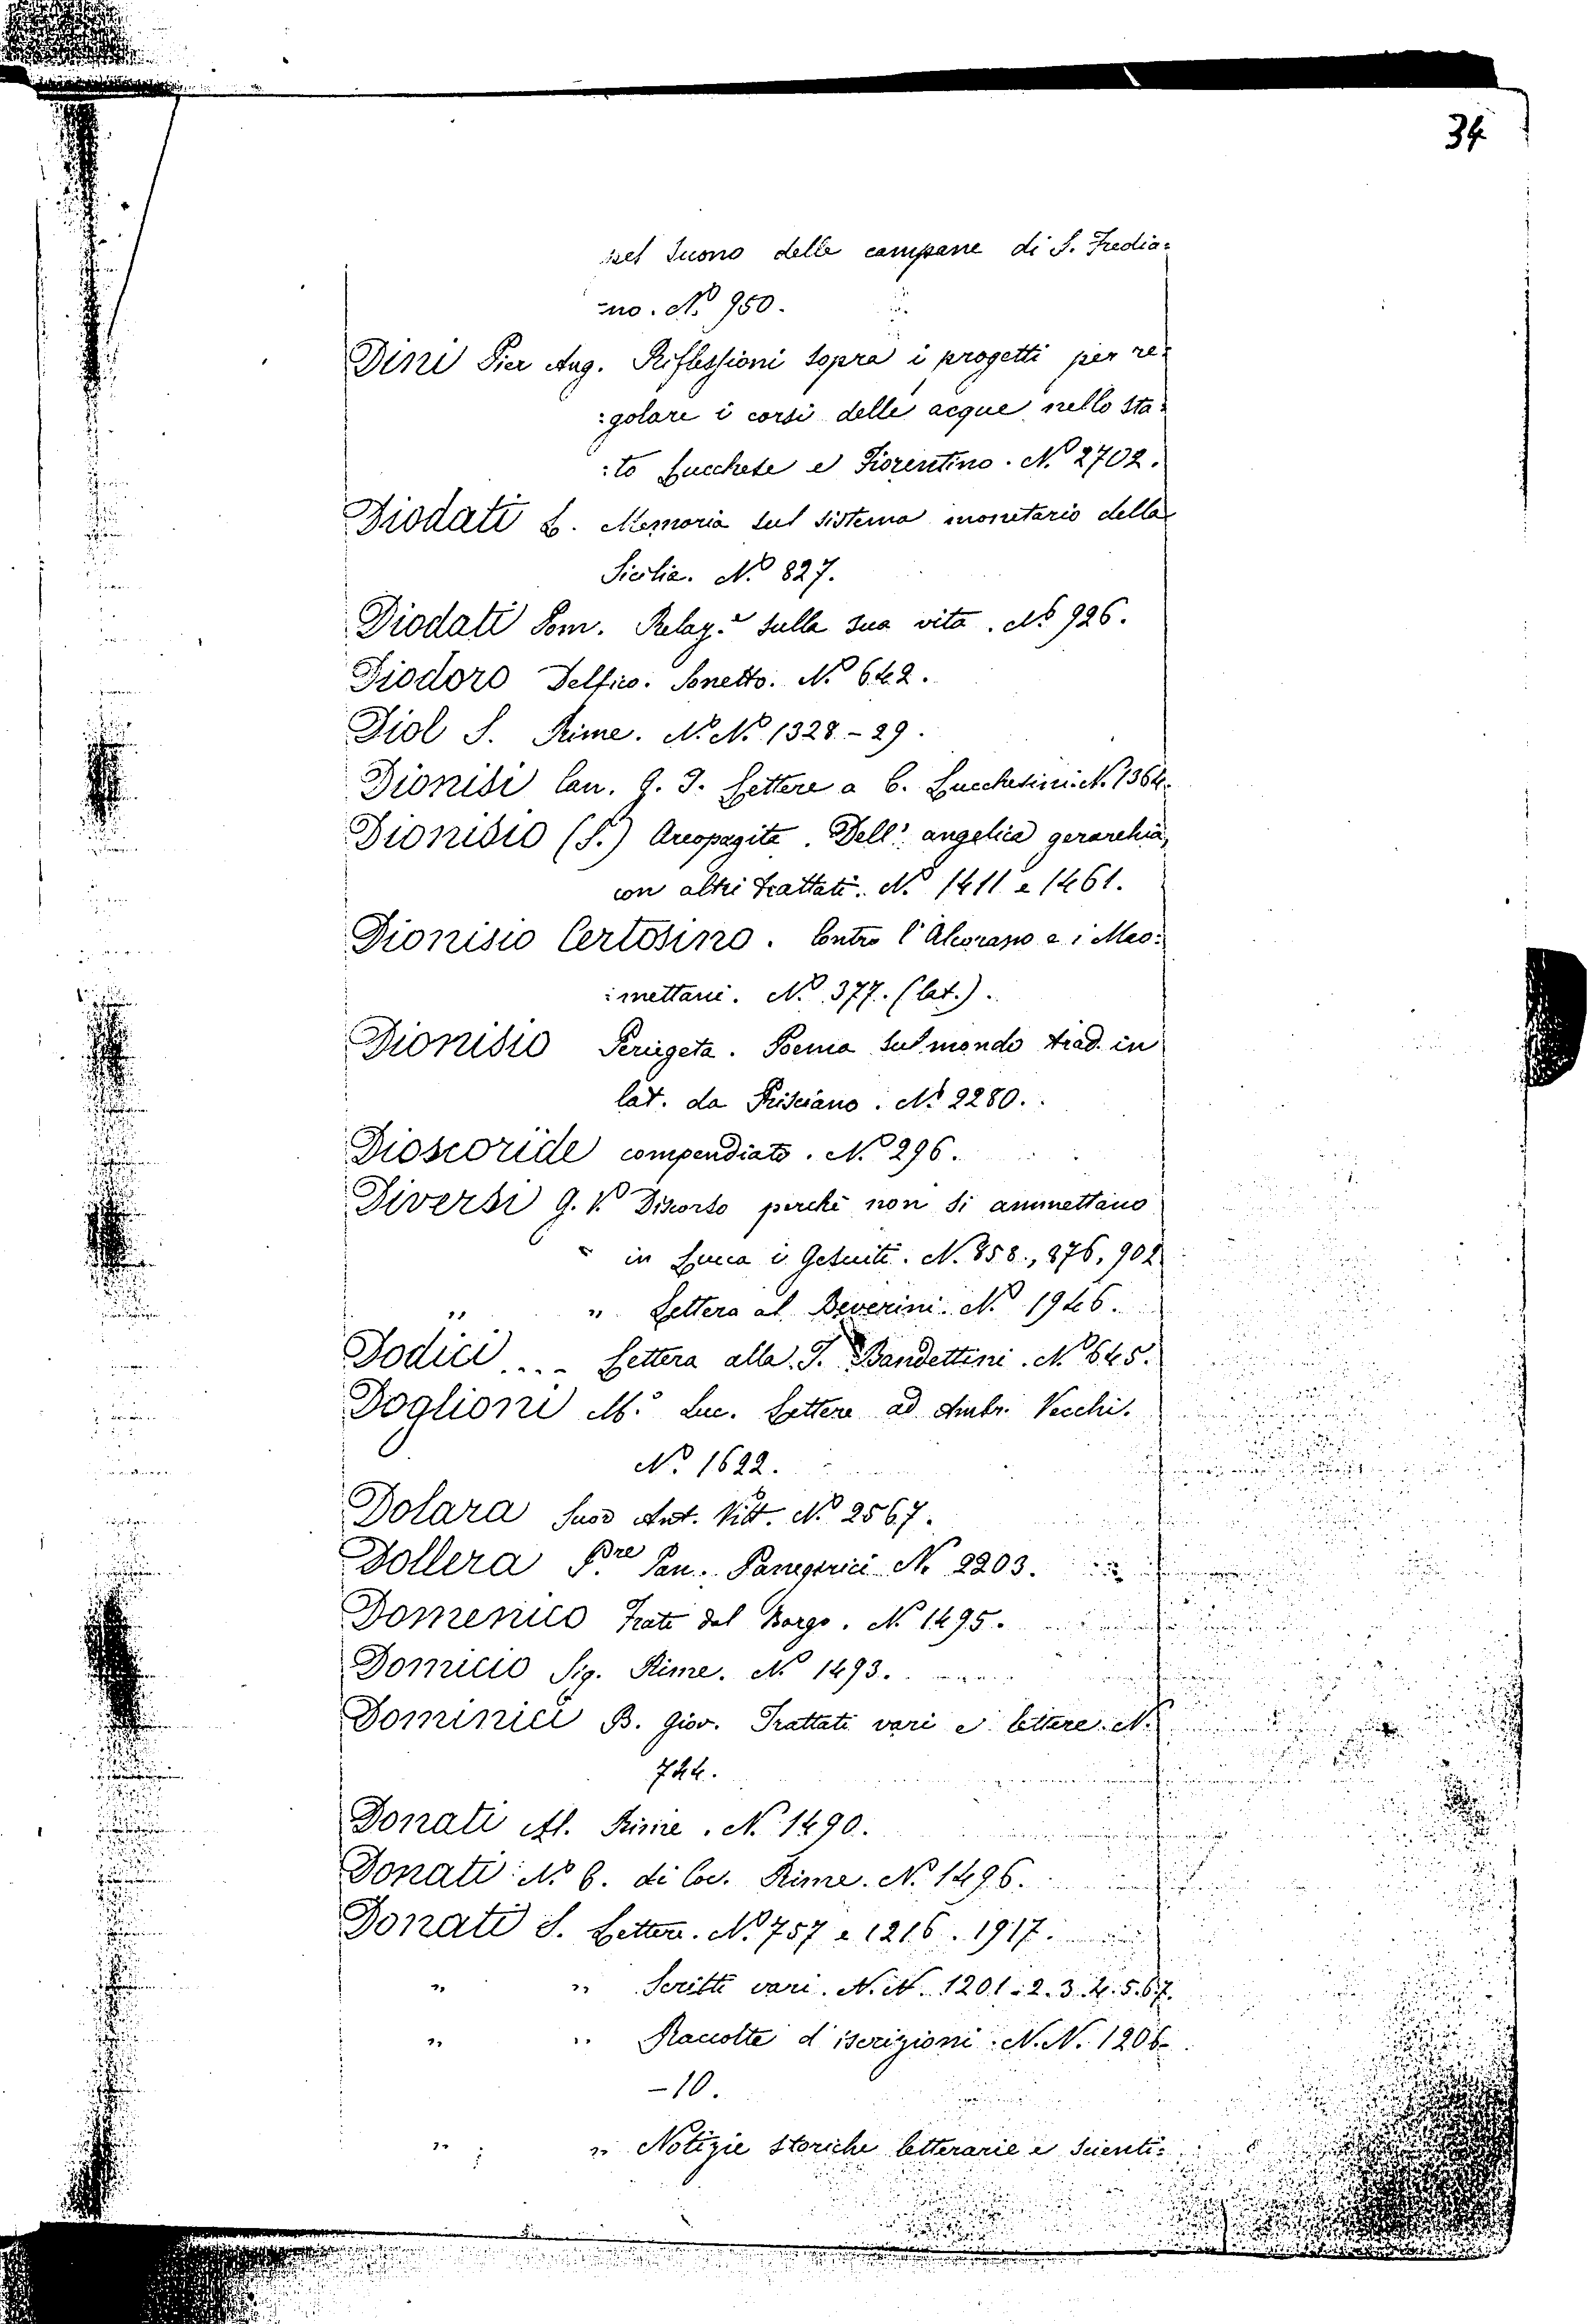 34
pel suono delle campane di S. Fredia=
=no. N.º 950.
Dini Pier Ang. Riflessioni sopra i progetti per re=
:golare i corsi delle acque nello sta=
:to Lucchese e Fiorentino. N.º 2702.
Diodati L. Memoria sul sistema monetario della
Sicilia. N.º 827.
Diodati Pom. Relaz.e sulla sua vita. N.º 926.
Diodoro Delfico. Sonetto. N.º 642.
Diol S. Rime. N.º N.º 1328-29.
Dionisi Can. G. J. Lettere a C. Lucchesini. N. 1364.
Dionisio (S.) Areopagita. Dell' angelica gerarchia,
con altri trattati. N.º 1411 e 1461.
Dionisio Certosino. Contro l'Alcorano e i Mao:
:mettani. N.º 377. (lat.).
Dionisio Periegeta. Poema sul mondo trad. in
lat. da Prisciano. N.º 2280.
Dioscoride compendiato. N.º 296.
Diversi G. V. Discorso perchè non si ammettano
in Lucca i Gesuiti. N. 858., 876, 902
" " Lettera al Beverini. N.º 1946.
Dodici .... Lettera alla T. Bandettini. N.º 645.
Doglioni M.º Luc. Lettere ad Ambr. Vecchi.
N.º 1622.
Dolara Suor Ant. Vitt. N.º 2567.
Dollera P.re Pan. Panegirici N. 2203.
Domenico Frate dal Borgo. N. 1495.
Domicio Sig. Rime. N.º 1493.
Dominici B. Giov. Trattati vari e lettere. N.
744.
Donati Al. Rime. N. 1490.
Donati N.º C. di Coc. Rime. N.º 1496.
Donati S. Lettere. N.º 757 e 1216. 1917.
" " Scritti vari. N.N. 1201.2.3.4.5.6.7.
" " Raccolte d'iscrizioni. N.N. 1206-
-10.
" " Notizie storiche letterarie e scienti=